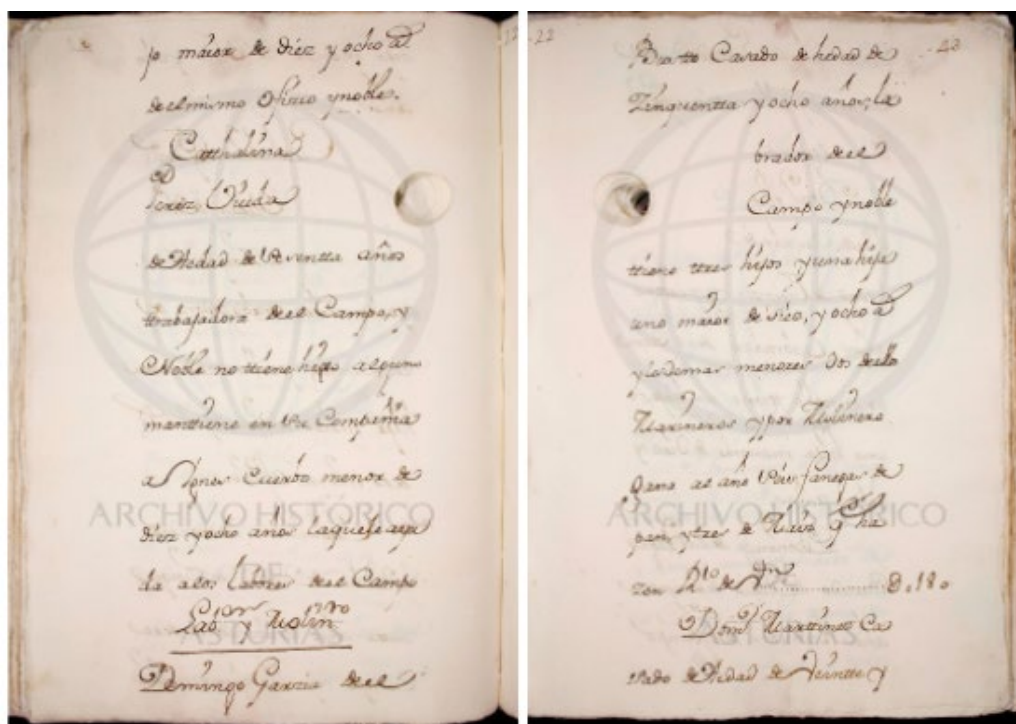 jo maior de diez y ocho aˢ
de el mismo ofizio y noble.
Catthalina
Perez, Viuda
de Hedad de Sesentta años
ttrabajadora de el Campo, y
Noble no ttiene hijo alguno
manttiene en su Compañia
a Ygnes Cuerbo menor de
diez y ocho años la que le aiu
da a los labores de el Campo
Labᵒʳ y Molinʳᵒ
Domingo Garzia de el
22
43
Bustto Casado de hedad de
Zinquentta y ocho años, la
brador de el
Campo y noble
ttiene ttres hijos y una hija
uno maior de diez, y ocho aˢ
y los demas menores dos de ellos
Marineros y por Molinero
Gana al año seis fanegas de
pan, y tres de Maiz q ha
zen Rᵗᵒ de Vⁿ ........ 180
Domᵒ Marttinez Ca
sado de Hedad de Veintte y
ARCHIVO HISTÓRICO
DE
ASTURIAS
ARCHIVO HISTÓRICO
DE
ASTURIAS